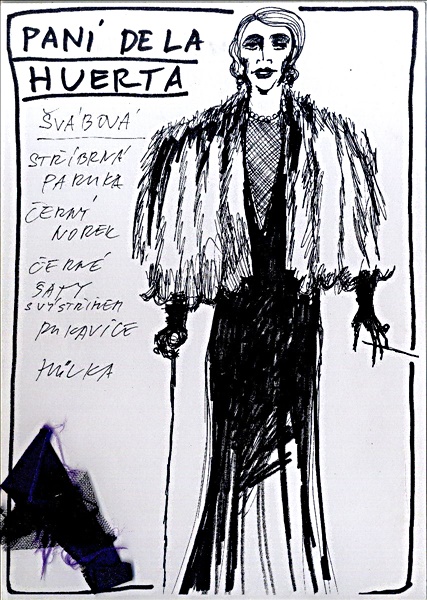 PANÍ DE LA
HUERTA
ŠVÁBOVÁ
STŘÍBRNÁ
PARUKA
ČERNÝ
NOREK
ČERNÉ
ŠATY
S VÝSTŘIHEM
RUKAVICE
HŮLKA